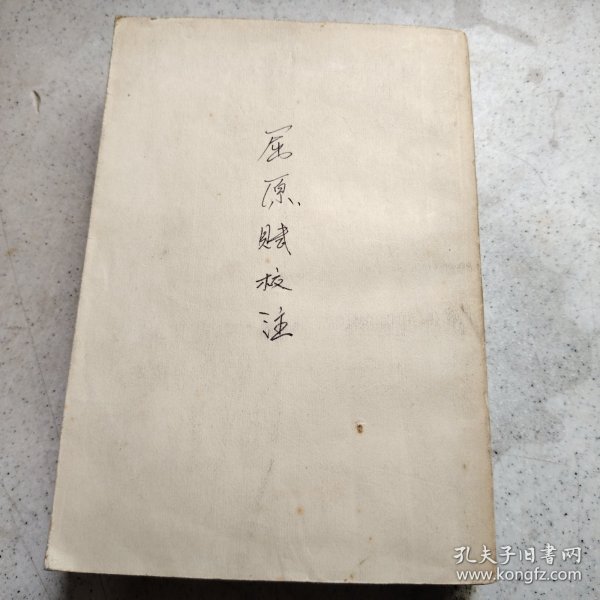 屈原赋校注
孔夫子旧书网
www.kongfz.com